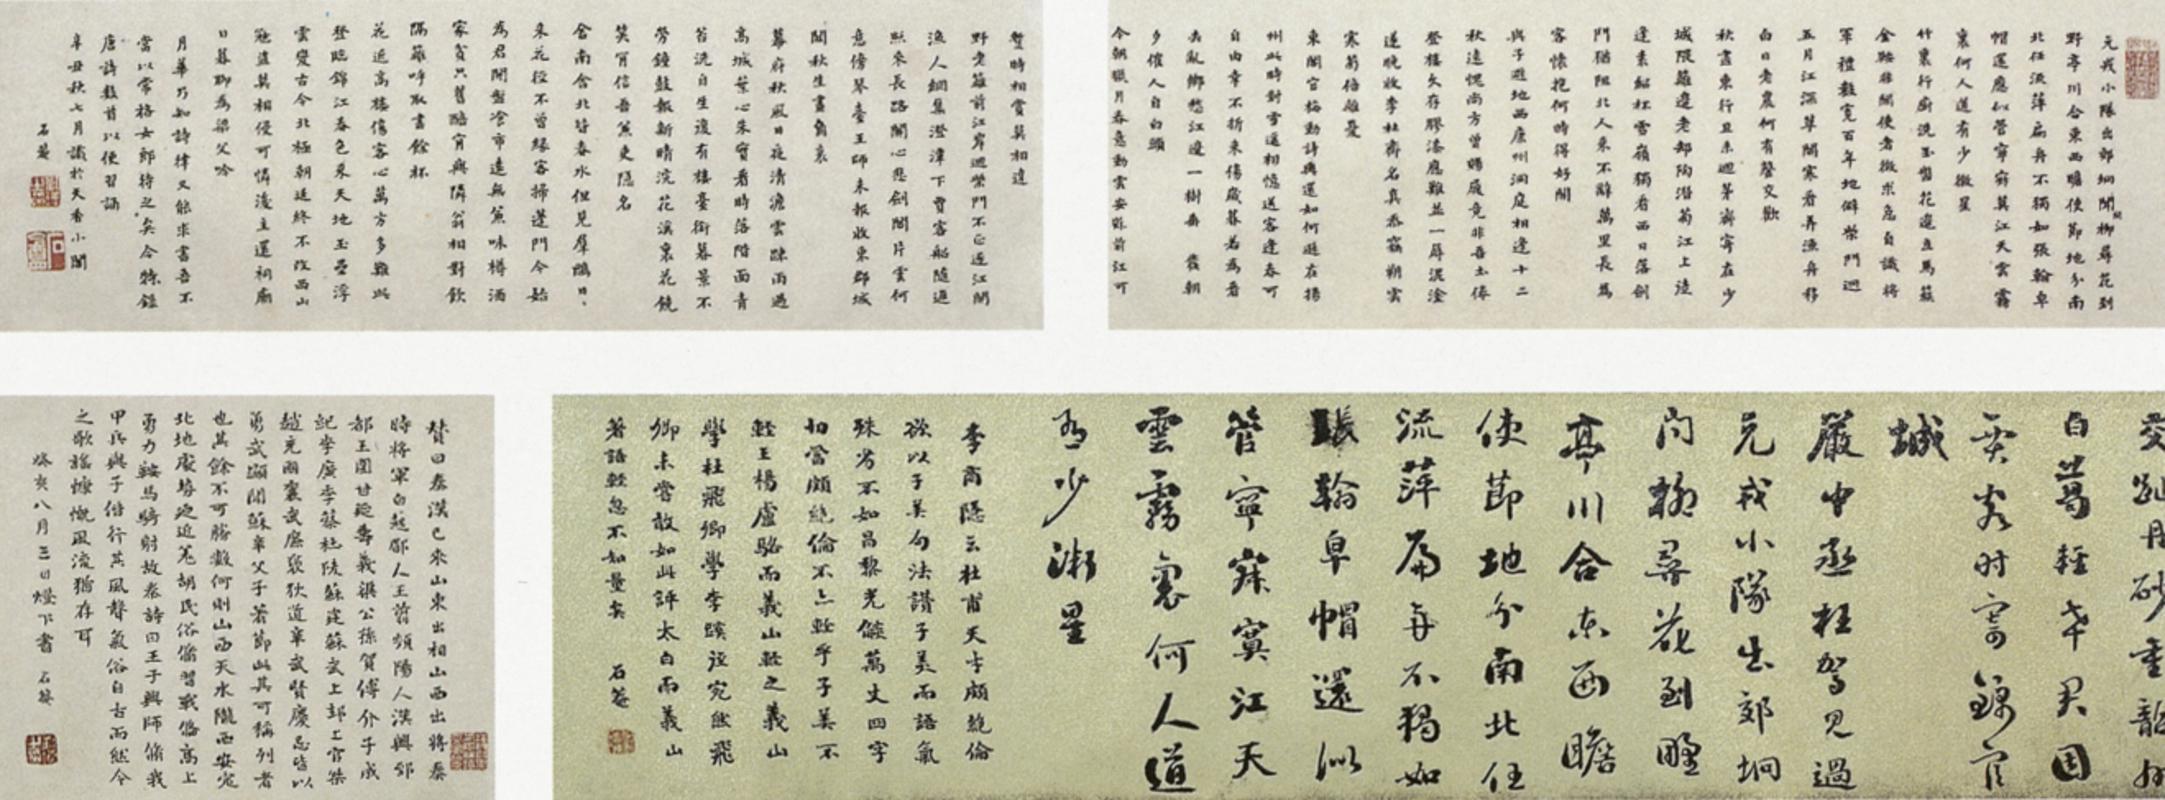 元戎小隊出郊坰問柳尋花到
野亭川合東西瞻使節地分南
北任流萍扁舟不獨如張翰皁
帽還應似管寧寂寞江天雲霧
裏何人道有少微星
竹裏行廚洗玉盤花邊立馬簇
金鞍非關使者徵求急自識將
軍禮數寬百年地僻柴門迥
五月江深草閣寒看弄漁舟移
白日老農何有罄交歡
秋盡東行且未迴茅齋寄在少
城隈籬邊老却陶潛菊江上徒
逢袁紹杯雪嶺獨看西日落劍
門猶阻北人來不辭萬里長為
客懷抱何時得好開
與子避地西康州洞庭相逢十二
秋遠愧尚方曾賜履竟非吾土倦
登樓久存膠漆應難並一辱泥塗
遂晚收李杜齊名真忝竊朔雲
寒菊倍離憂
東閣官梅動詩興還如何遜在揚
州此時對雪遙相憶送客逢春可
自由幸不折來傷歲暮若為看
去亂鄉愁江邊一樹垂 發朝
夕催人自白頭
今朝臘月春意動雲安縣前江可
暫時相賞莫相違
野老籬前江岸迴柴門不正逐江開
漁人網集澄潭下賈客船隨返
照來長路關心悲劍閣片雲何
意傍琴臺王師未報收東郡城
闕秋生畫角哀
幕府秋風日夜清澹雲踈雨過
高城葉心朱實看時落階面青
苔洗自生復有樓臺銜暮景不
勞鐘鼓報新晴浣花溪裏花饒
笑肯信吾兼吏隱名
舍南舍北皆春水但見羣鷗日〻
來花徑不曾緣客掃蓬門今始
為君開盤飧市遠無兼味樽酒
家貧只舊醅肯與隣翁相對飲
隔籬呼取盡餘杯
花近高樓傷客心萬方多難此
登臨錦江春色來天地玉壘浮
雲變古今北極朝廷終不改西山
寇盜莫相侵可憐後主還祠廟
日暮聊為梁父吟
月華乃知詩律又能求書吾不
當以常格女郎待之矣今特錄
唐詩數首以便習誦
辛丑秋七月識於天香小閣
石菴
交趾丹砂重韶州
白葛輕幸君因
賈客時寄錦官
城
嚴中丞枉駕見過
元戎小隊出郊坰
問柳尋花到野
亭川合東西瞻
使節地分南北任
流萍扁舟不獨如
張翰皁帽還似
管寧寂寞江天
雲霧裏何人道
有少微星
李商隱云杜甫天才頗絕倫
欲以子美句法讚子美而語氣
殊劣不如昌黎光燄萬丈四字
相當頗絕倫不亦輕乎子美不
輕王楊盧駱而義山輕之義山
學杜飛卿學李蹊徑宛然飛
卿未嘗敢如此評太白而義山
著語輕忽不知量矣
石菴
贊曰秦漢已來山東出相山西出將秦
時將軍白起郿人王翦頻陽人漢興郁
郅王圍甘延壽義渠公孫賀傅介子成
紀李廣李蔡杜陵蘇建蘇武上邽上官桀
趙充國襄武廉褒狄道辛武賢慶忌皆以
勇武顯聞蘇辛父子著節此其可稱列者
也其餘不可勝數何則山西天水隴西安定
北地處埶迫近羌胡民俗脩習戰備高上
勇力鞍馬騎射故秦詩曰王于興師脩我
甲兵與子偕行其風聲氣俗自古而然今
之歌謠慷慨風流猶存耳
癸亥八月三日燈下書 石菴